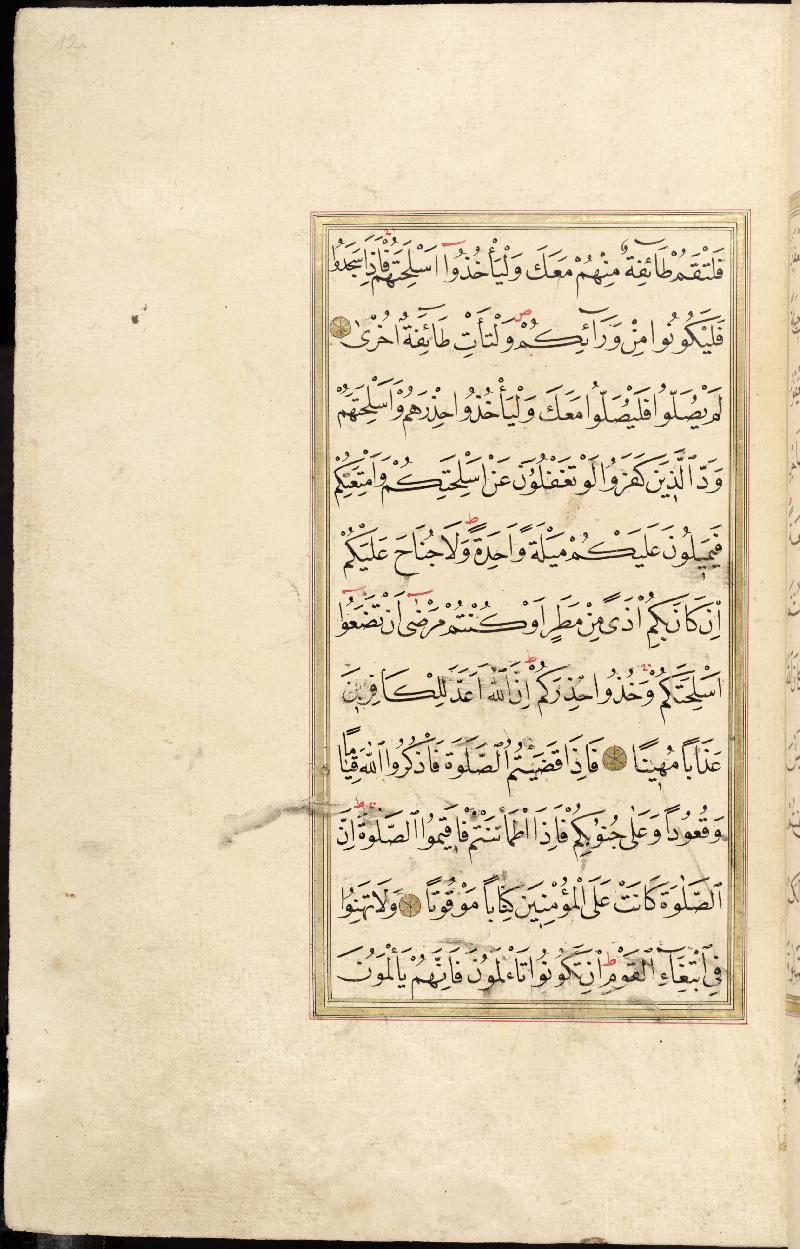 12
فَلْتَقُمْ طَائِفَةٌ مِنْهُمْ مَعَكَ وَلْيَأْخُذُوا اَسْلِحَتَهُمْ فَاِذَا سَجَدُوا
فَلْيَكُونُوا مِنْ وَرَائِكُمْ ص وَلْتَأْتِ طَائِفَةٌ اُخْرٰى
لَمْ يُصَلُّوا فَلْيُصَلُّوا مَعَكَ وَلْيَأْخُذُوا حِذْرَهُمْ وَاَسْلِحَتَهُمْ
وَدَّ الَّذِينَ كَفَرُوا لَوْ تَغْفُلُونَ عَنْ اَسْلِحَتِكُمْ وَاَمْتِعَتِكُمْ
فَيَمِيلُونَ عَلَيْكُمْ مَيْلَةً وَاحِدَةً ط وَلَا جُنَاحَ عَلَيْكُمْ
اِنْ كَانَ بِكُمْ اَذًى مِنْ مَطَرٍ اَوْ كُنْتُمْ مَرْضٰى اَنْ تَضَعُوا
اَسْلِحَتَكُمْ وَخُذُوا حِذْرَكُمْ ط اِنَّ اللّٰهَ اَعَدَّ لِلْكَافِرِينَ
عَذَابًا مُهِينًا فَاِذَا قَضَيْتُمُ الصَّلٰوةَ فَاذْكُرُوا اللّٰهَ قِيَامًا
وَقُعُودًا وَعَلٰى جُنُوبِكُمْ فَاِذَا اطْمَأْنَنْتُمْ فَاَقِيمُوا الصَّلٰوةَ ط اِنَّ
الصَّلٰوةَ كَانَتْ عَلَى الْمُؤْمِنِينَ كِتَابًا مَوْقُوتًا وَلَا تَهِنُوا
فِى ابْتِغَاءِ الْقَوْمِ ط اِنْ تَكُونُوا تَأْلَمُونَ فَاِنَّهُمْ يَأْلَمُونَ